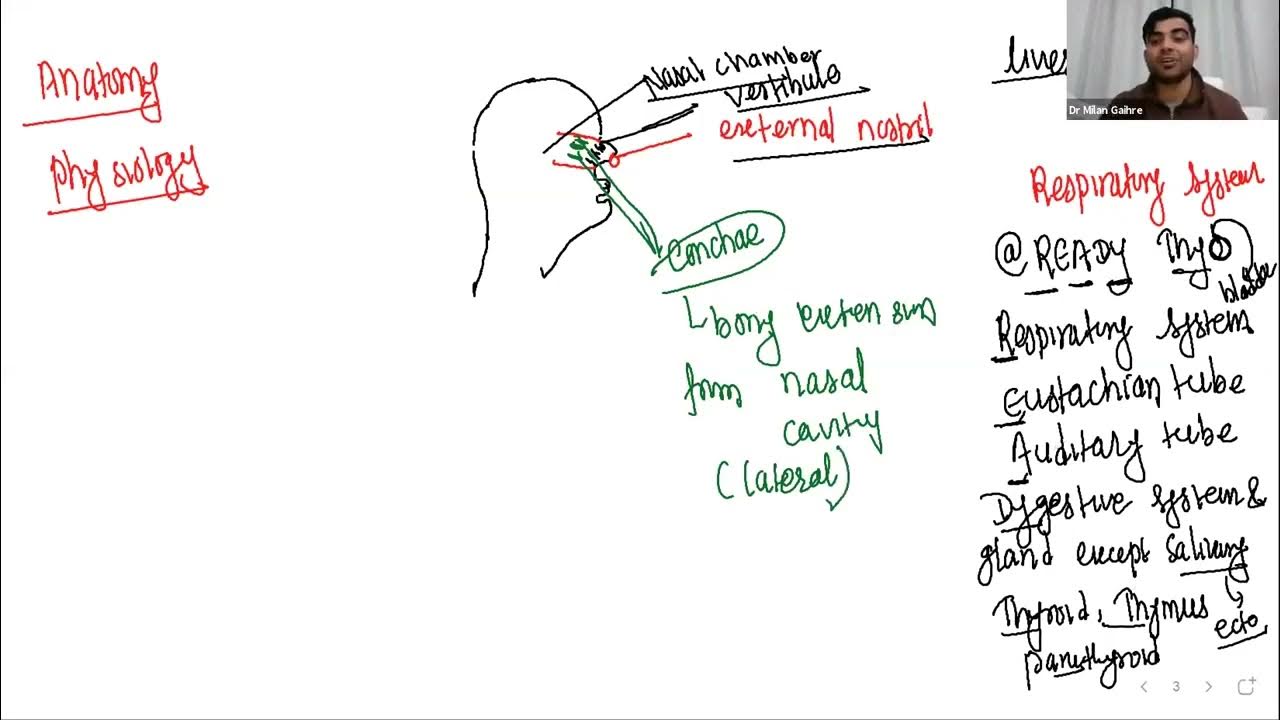 Anatomy
physiology
Nasal chamber
vestibule
external nostril
Conchae
bony extensions
from nasal
cavity
(lateral)
Dr Milan Gaihre
Respiratory system
@ READY Thy
bladder
Respiratory system
Eustachian tube
Auditary tube
Dygestive system &
gland except salivary
Thyroid, Thymus
ecto
parathyroid
3